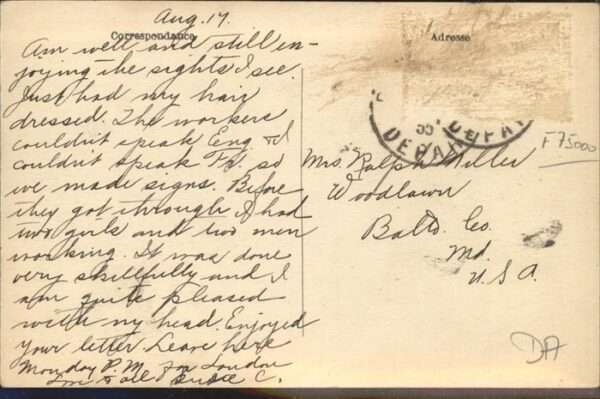 Aug. 17.
Correspondance
Am well and still en-
joying the sights I see.
Just had my hair
dressed. The workers
couldn't speak Eng & I
couldn't speak Fr. so
we made signs. Before
they got through I had
two girls and two men
working. It was done
very skillfully and I
am quite pleased
with my head. Enjoyed
your letter Leave here
Monday P.M. for London
Love to all Susie C.
Adresse
DEPART
Mrs. Ralph Miller
Woodlawn
Balto. Co.
Md.
U.S.A.
F75000
DA